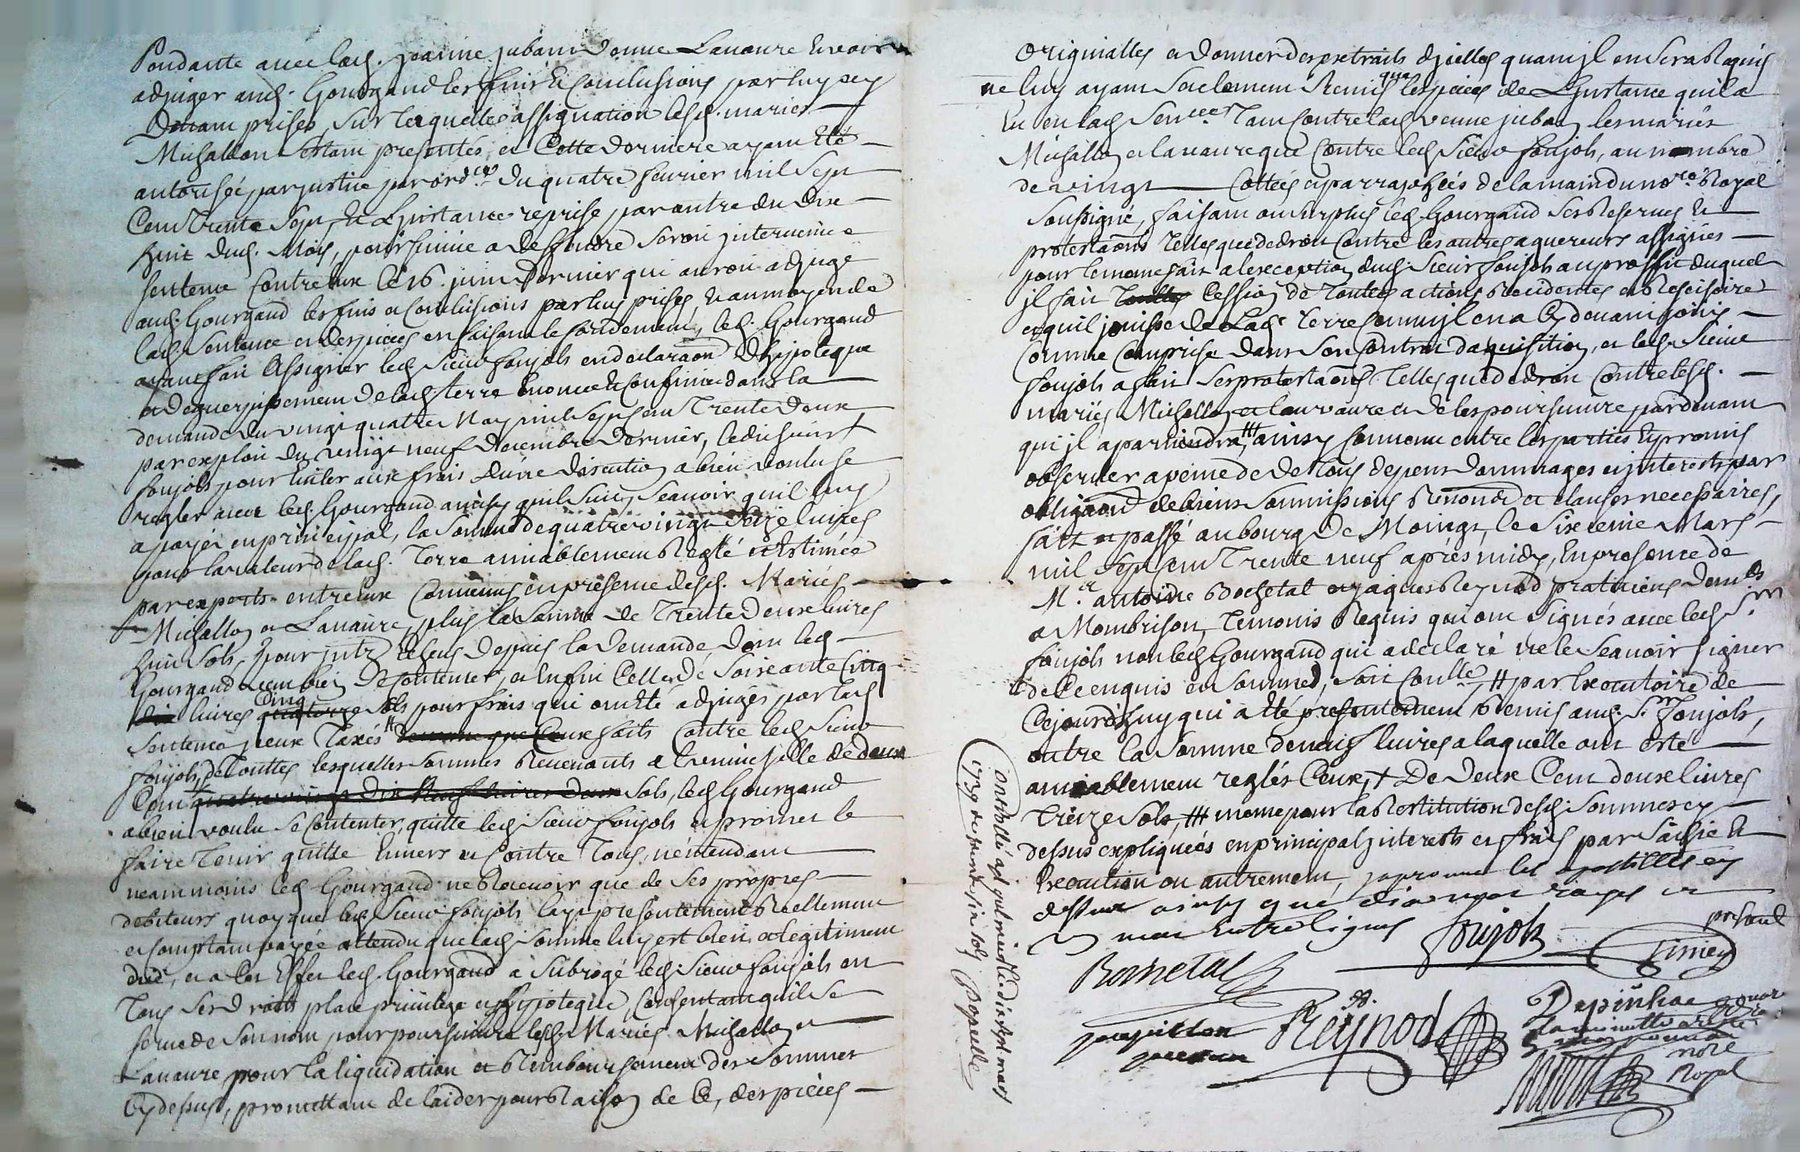 Pendante avec lad. jeanne juban donne Lavaure en voir
adjuger aud. Gourgaud les fins et Conclusions par luy cy
devant prises, sur laquelle assignation lesd. mariés
Michallon s'etant presentés, et Cette derniere ayant été
autorisée par justice par ord.ce du quatre fevrier mil sept
Cent trente sept, et L'instance reprise par autre du dix
huit dud. Mois, poursuivie a deffendre seroit intervenüe
sentence Contre eux le 26. juin dernier qui auroit adjugé
aud. Gourgaud les fins et Conclusions par luy prises, et au moyen de
lad. sentence et des pieces en faisant le fondement, led. Gourgaud
ayant fait assigner led. sieur foujols en declara͠on d'hipoteque
et deguerpissement de lad. terre enoncée et Confinée dans la
demande du vingt quatre May mil sept cent trente deux,
par exploit du vingt neuf Decembre dernier, ledit sieur
foujols pour eviter aux frais d'une discution a bien voulu se
regler avec led. Gourgaud ainsy qu'il suit, scavoir qu'il luy
a payé en principal, la somme de quatre vingt seize livres
pour la valeur de lad. Terre amiablement Reglé et Estimée
par experts entre eux Convenus en presence desd. Mariés
Michallon et Lavaure, plus la somme de Trente deux livres
huit sols, pour intz echeus depuis la demande dont led.
Gourgaud a bien voulu se contenter, et Enfin Celle de soixante cinq
livres cinq sols pour frais qui ont été adjugés par lad.
sentence, ceux Taxés faits Contre led. sieur
foujols, de Touttes lesquelles sommes Revenants a celle de deux
Cent sols, led. Gourgaud
a bien voulu se contenter, quitte led. sieur foujols et promet le
faire Tenir quitte Envers et Contre Tous, n'entendant
neanmoins led. Gourgaud ne Recevoir que de ses propres
debiteurs quoyque led. sieur foujols l'aye presentement Reellement
et Comptant payée attendu que lad. somme luy est bien et legitiment
düe, et a Cet Effet led. Gourgaud a subrogé led. sieur foujols en
Tous ses droits place privilege et hypoteque, Consentant qu'il se
serve de son nom pour poursuivre lesd. Mariés Michallon et
Lavaure pour la liquidation et Remboursement des sommes
Cy dessus, promettant de l'aider pour Raison de Ce, des pieces
originalles et donner des extraits d'icelles quand il en sera Requis
ne luy ayant seulement Remis que les pieces de L'instance qu'il a
Eu en lad. sen.cée Tant Contre lad. veuve juban, les mariés
Michallon et lavaure que Contre led. sieur foujols, au nombre
de vingt Cottées et parraphées de la main du no.re Royal
soussigné, faisant au surplus led. Gourgaud ses Reserves et
protesta͠ons telles que de droit Contre les autres aquereurs assignés
pour le meme fait a l'exception dud. sieur foujols au proffit duquel
il fait Cession de Toutes actions Recidentes et Rescisoires
et qu'il jouisse de Lad. terre comme il en a Cy devant joüi
Comme Comprise dans son Contrat d'aquisition, et led. sieur
foujols a fait ses protesta͠ons telles que de droit Contre lesd.
mariés Michallon et Lauvaure et de les poursuivre pardevant
qui il apartiendra, ainsy Convenu entre les parties et promis
observer a peine de de tous depens dommages et interests par
obliga͠on de biens soumissions Renon͠on et clauses necessaires,
fait et passé au bourg de Moingt, le sixieme Mars
mil sept cent trente neuf après midy, En presence de
M.e antoine Rochetal et jaques Reynod praticiens dem͠ts
a Mombrison, temoins Requis qui ont signés avec led. S.r
foujols non led. Gourgaud qui a declaré ne le sçavoir signer
de Ce enquis et sommé, soit Con.llé, # par Executoire de
Cejourd'huy qui a été presentement Remis aud. S.r foujols,
outre la somme de neuf livres a laquelle ont esté
amiablement reglés Ceux, + De Deux Cent deux livres
Treize sols, ### meme pour la Restitution desd. sommes cy
dessus expliquées en principal, interests et frais par saisie et
Execution ou autrement, japrouve les apostilles cy
dessus ainsy que dix mots rayés et
un mot entreligne Foujols
present
Rochetal
Reÿnod
Royal
Controllé a Montbrison le dix sept mars
1739